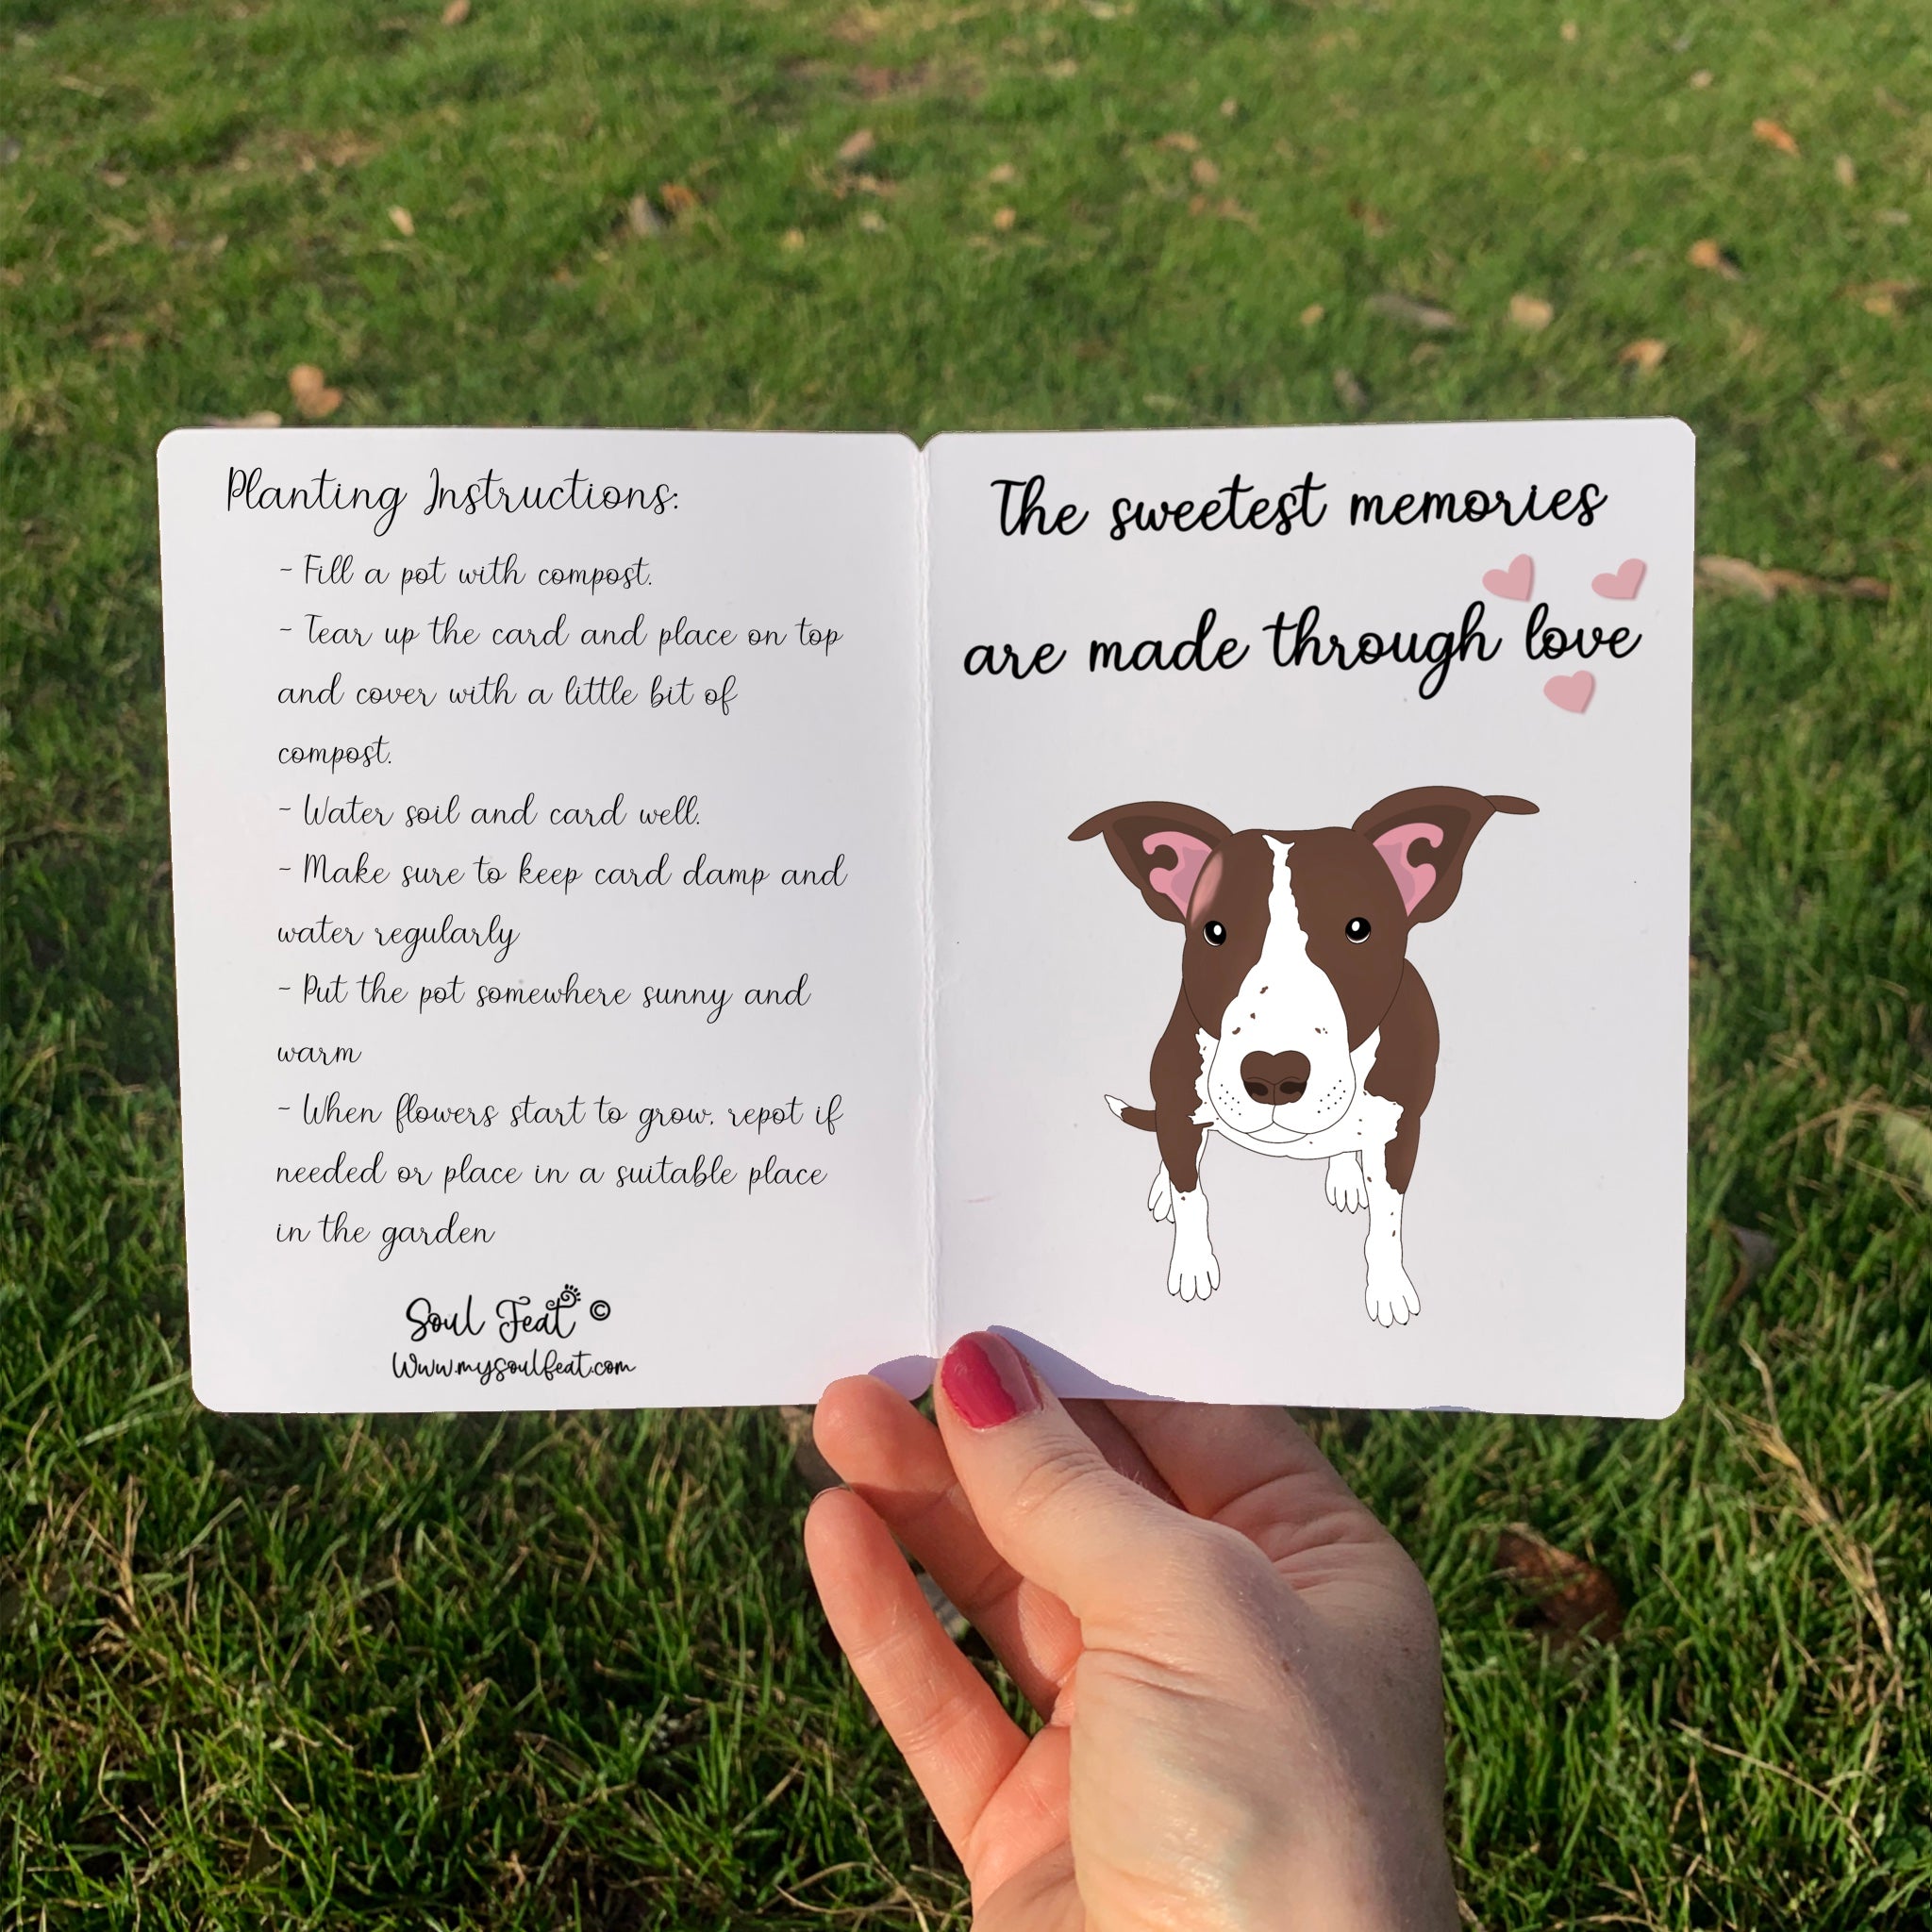 Planting Instructions:
- Fill a pot with compost.
- Tear up the card and place on top
and cover with a little bit of
compost.
- Water soil and card well.
- Make sure to keep card damp and
water regularly
- Put the pot somewhere sunny and
warm
- When flowers start to grow, repot if
needed or place in a suitable place
in the garden
Soul Feat ©
Www.mysoulfeat.com
The sweetest memories
are made through love